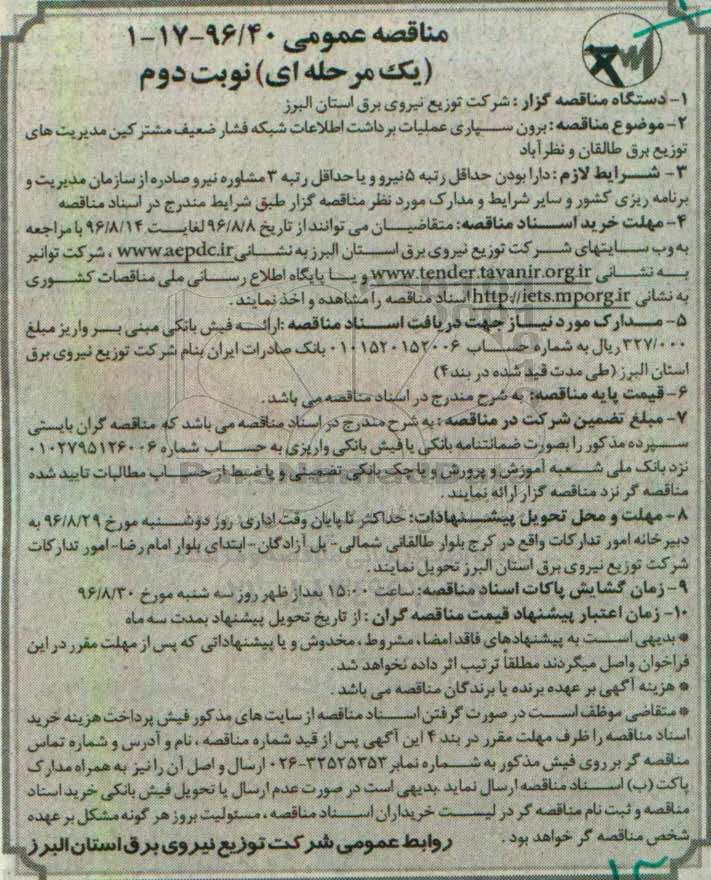 مناقصه عمومی ۹۶/۴۰-۱۷-۱
(یک مرحله ای) نوبت دوم
۱- دستگاه مناقصه گزار: شرکت توزیع نیروی برق استان البرز
۲- موضوع مناقصه: برون سپاری عملیات برداشت اطلاعات شبکه فشار ضعیف مشترکین مدیریت های
توزیع برق طالقان و نظرآباد
۳- شرایط لازم: دارا بودن حداقل رتبه ۵ نیرو و یا حداقل رتبه ۳ مشاوره نیرو صادره از سازمان مدیریت و
برنامه ریزی کشور و سایر شرایط و مدارک مورد نظر مناقصه گزار طبق شرایط مندرج در اسناد مناقصه
۴- مهلت خرید اسناد مناقصه: متقاضیان می توانند از تاریخ ۹۶/۸/۸ لغایت ۹۶/۸/۱۴ با مراجعه
به وب سایتهای شرکت توزیع نیروی برق استان البرز به نشانی www.aepdc.ir ، شرکت توانیر
به نشانی www.tender.tavanir.org.ir و یا پایگاه اطلاع رسانی ملی مناقصات کشوری
به نشانی http://iets.mporg.ir اسناد مناقصه را مشاهده و اخذ نمایند .
۵- مدارک مورد نیاز جهت دریافت اسناد مناقصه: ارائه فیش بانکی مبنی بر واریز مبلغ
۳۲۷/۰۰۰ ریال به شماره حساب ۰۱۰۱۵۲۰۱۵۲۰۰۶ بانک صادرات ایران بنام شرکت توزیع نیروی برق
استان البرز (طی مدت قید شده در بند ۴)
۶- قیمت پایه مناقصه: به شرح مندرج در اسناد مناقصه می باشد .
۷- مبلغ تضمین شرکت در مناقصه: به شرح مندرج در اسناد مناقصه می باشد که مناقصه گران بایستی
سپرده مذکور را بصورت ضمانتنامه بانکی یا فیش بانکی واریزی به حساب شماره ۰۱۰۲۷۹۵۱۲۶۰۰۶
نزد بانک ملی شعبه آموزش و پرورش و یا چک بانکی تضمینی و یا ضبط از حساب مطالبات تایید شده
مناقصه گر نزد مناقصه گزار ارائه نمایند .
۸- مهلت و محل تحویل پیشنهادات: حداکثر تا پایان وقت اداری روز دوشنبه مورخ ۹۶/۸/۲۹ به
دبیرخانه امور تدارکات واقع در کرج بلوار طالقانی شمالی- پل آزادگان- ابتدای بلوار امام رضا- امور تدارکات
شرکت توزیع نیروی برق استان البرز تحویل نمایند .
۹- زمان گشایش پاکات اسناد مناقصه: ساعت ۱۵:۰۰ بعد از ظهر روز سه شنبه مورخ ۹۶/۸/۳۰
۱۰- زمان اعتبار پیشنهاد قیمت مناقصه گران: از تاریخ تحویل پیشنهاد بمدت سه ماه
* بدیهی است به پیشنهادهای فاقد امضا، مشروط، مخدوش و یا پیشنهاداتی که پس از مهلت مقرر در این
فراخوان واصل میگردند مطلقاً ترتیب اثر داده نخواهد شد .
* هزینه آگهی بر عهده برنده یا برندگان مناقصه می باشد .
* متقاضی موظف است در صورت گرفتن اسناد مناقصه از سایت های مذکور فیش پرداخت هزینه خرید
اسناد مناقصه را ظرف مهلت مقرر در بند ۴ این آگهی پس از قید شماره مناقصه ، نام و آدرس و شماره تماس
مناقصه گر بر روی فیش مذکور به شماره نمابر ۳۲۵۲۵۳۵۳-۰۲۶ ارسال و اصل آن را نیز به همراه مدارک
پاکت (ب) اسناد مناقصه ارسال نماید .بدیهی است در صورت عدم ارسال یا تحویل فیش بانکی خرید اسناد
مناقصه و ثبت نام مناقصه گر در لیست خریداران اسناد مناقصه ، مسئولیت بروز هر گونه مشکل بر عهده
شخص مناقصه گر خواهد بود .
روابط عمومی شرکت توزیع نیروی برق استان البرز